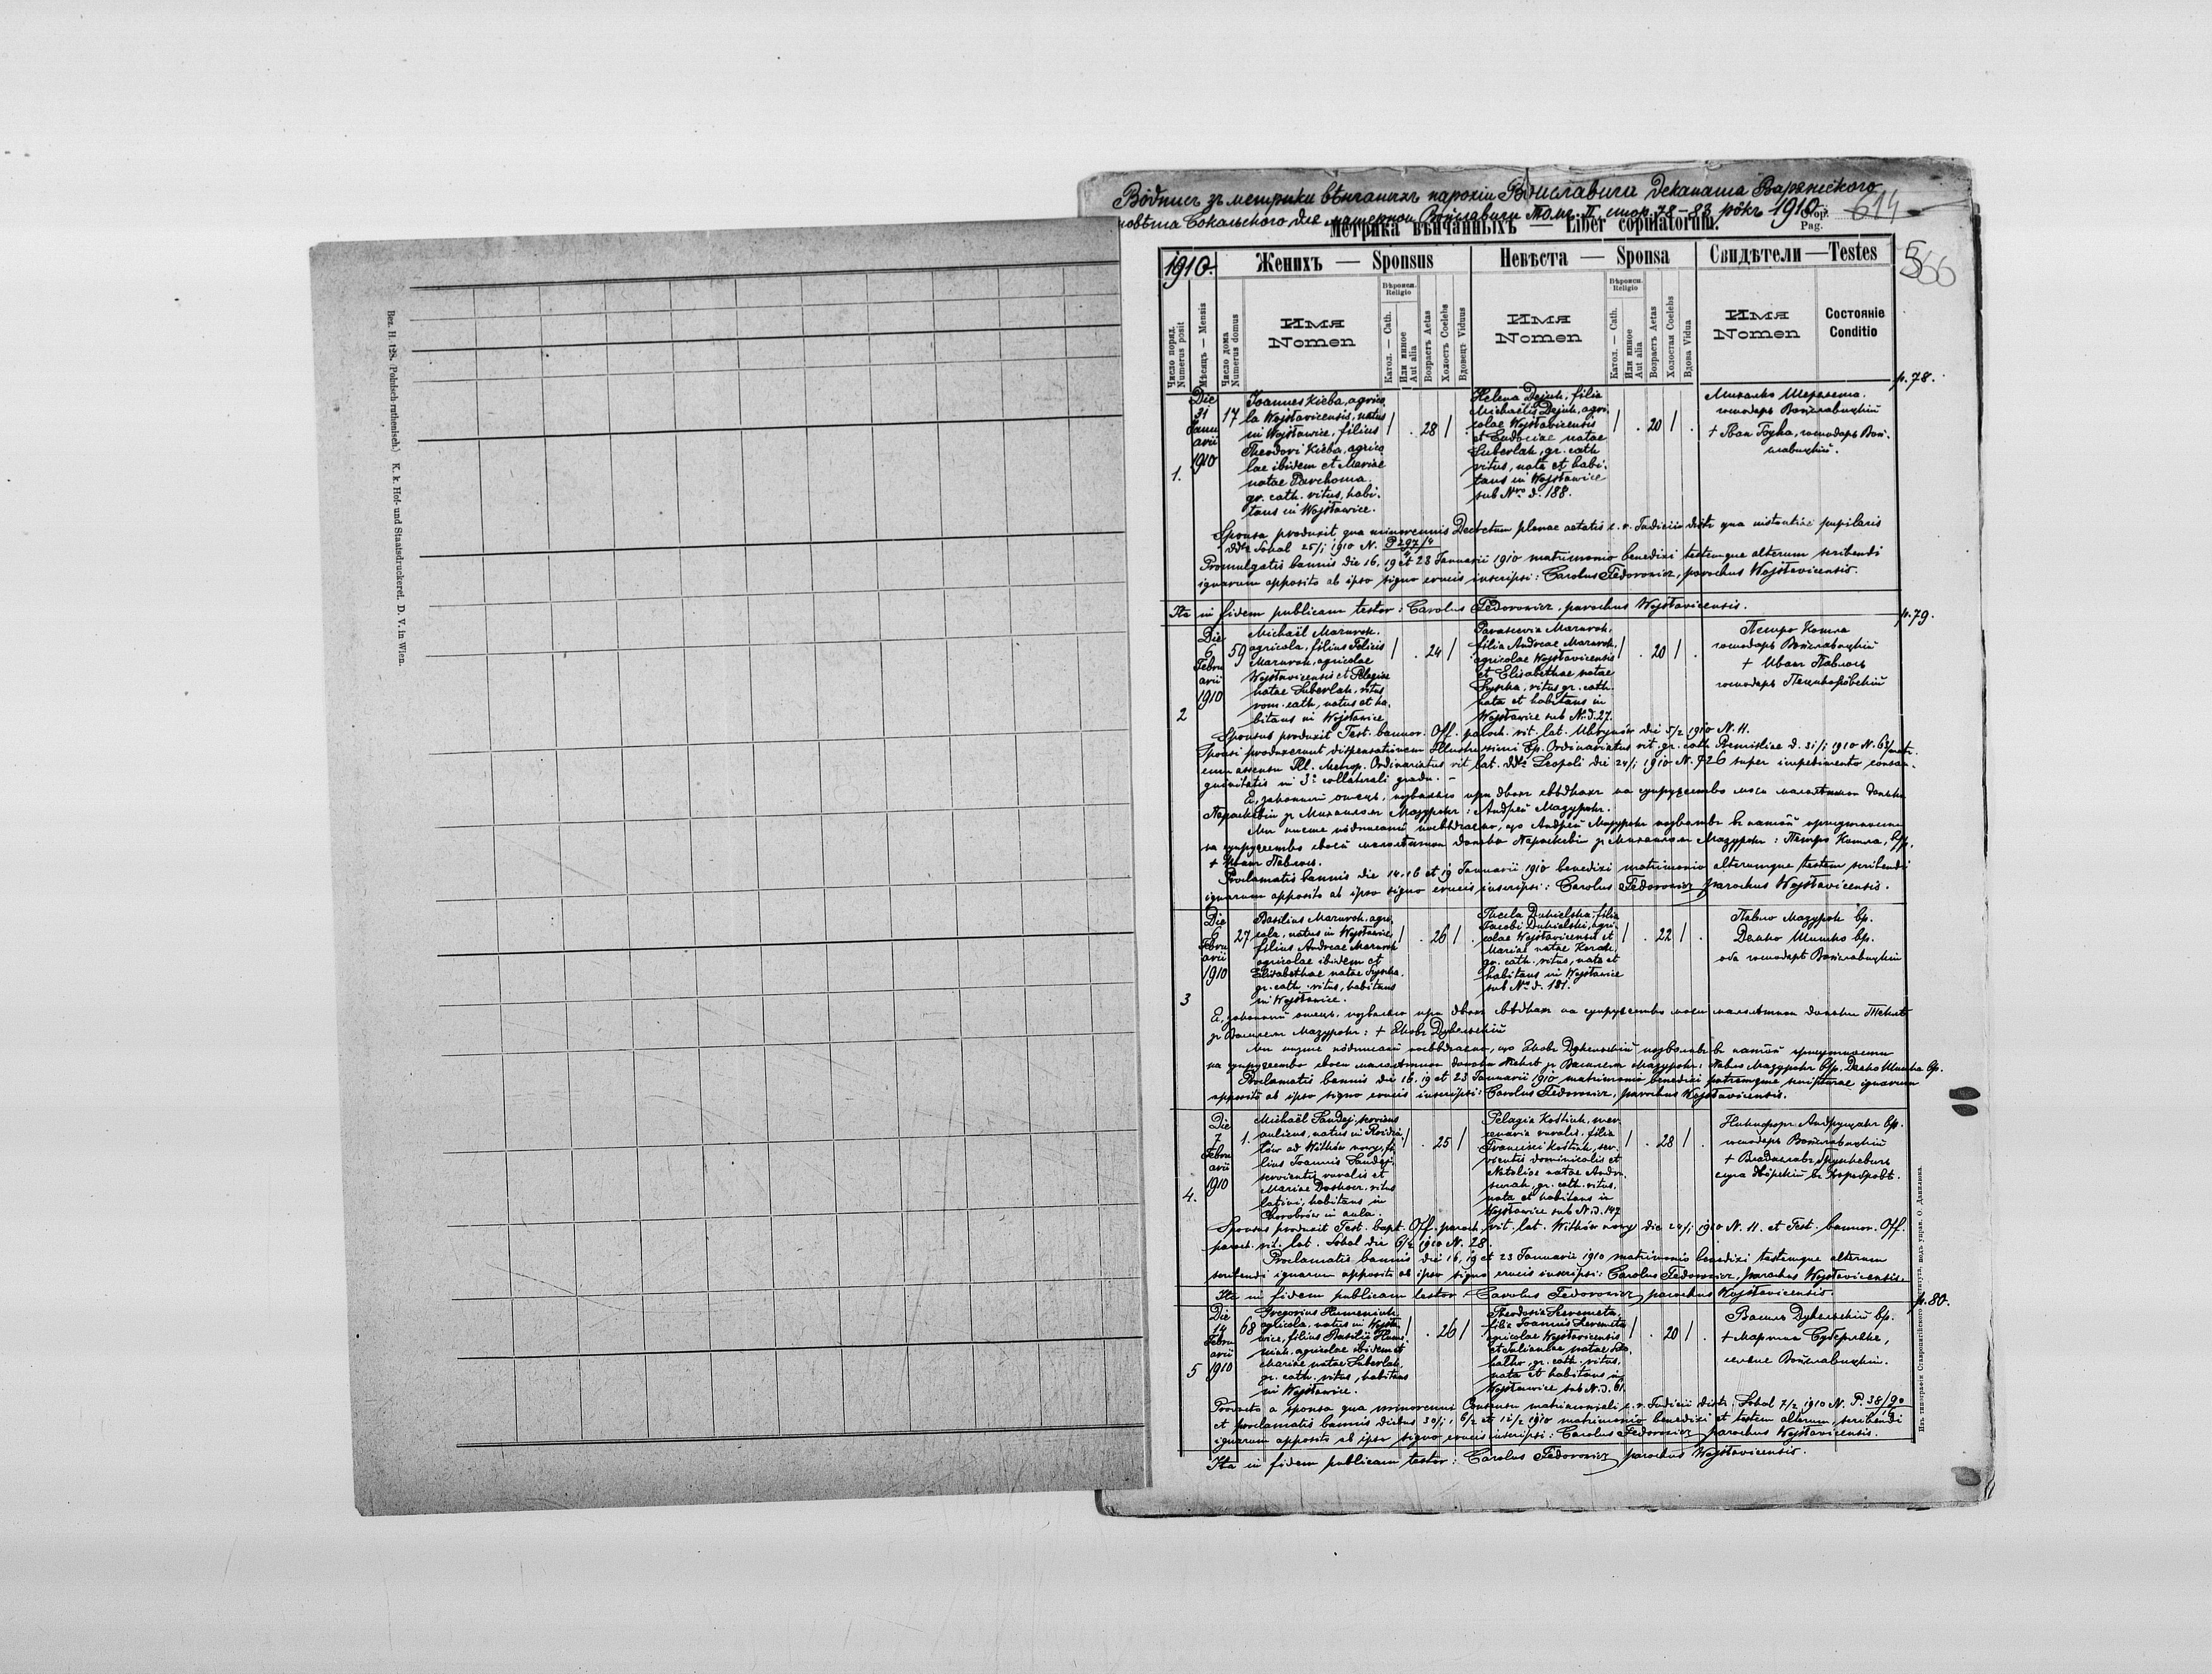 Bez. H. 128. (Polnisch-ruthenisch.) K. k. Hof- und Staatsdruckerei. D. V. in Wien.
Вôдпись зъ метрики вѣнчаныхъ парохіи Войславичи деканата Варяжского
повѣта Сокальского для матерной Войславичи Томъ II. стор. 78–83 рôкъ 1910.
Метрика вѣнчанныхъ — Liber copulatorum.
Стор.
Pag.
614
566
1910.
Женихъ — Sponsus
Невѣста — Sponsa
Свидѣтели — Testes
Число поряд.
Numerus posit
Мѣсяцъ — Mensis
Число дома
Numerus domus
Имя
Nomen
Вѣроисп.
Religio
Катол. — Cath.
Или инное
Aut alia
Возрастъ Aetas
Холостъ Coelebs
Вдовецъ Viduus
Имя
Nomen
Вѣроисп.
Religio
Катол. — Cath.
Или инное
Aut alia
Возрастъ Aetas
Холостая Coelebs
Вдова Vidua
Имя
Nomen
Состояніе
Conditio
p. 78.
1.
Die
31
Janu
arii
1910
17
Joannes Kieba, agrico
la Wojsławicensis, natus
in Wojsławice, filius
Theodori Kieba, agrico
lae ibidem et Mariae
natae Parchoma
gr. cath. ritus, habi
tans in Wojsławice.
28
Helena Dejuk, filia
Michaëlis Dejuk, agri
colae Wojsławicensis
et Eudociae natae
Suberlak, gr. cath
ritus, nata et habi
tans in Wojsławice
sub Nro d. 188.
20
Михалко Шеремета
господарь Войславицкій
+ Иван Бука, господарь Вой
славицкій.
Sponsa produxit qua minorennis Decretum plenae aetatis c. r. Judicii distr. qua instantiae pupilaris
ddto Sokal 25/1 1910 N. P 297/4
Promulgatis bannis die 16, 19 et 23 Januarii 1910 matrimonio benedixi testemque alterum scribendi
ignarum apposito ab ipso signo crucis inscripsi: Carolus Fedorowicz, parochus Wojsławicensis.
Ita in fidem publicam testor: Carolus Fedorowicz, parochus Wojsławicensis.
p. 79.
2
Die
6
Febru
arii
1910
59
Michaël Mazurok
agricola, filius Felicis
Mazurok, agricolae
Wojsławicensis et Pelagiae
natae Suberlak, ritus
rom. cath, natus et ha
bitans in Wojsławice
24
Parascevia Mazurok,
filia Andreae Mazurok,
agricolae Wojsławicensis
et Elisabethae natae
ritus gr. cath.
nata et habitans in
Wojsławice sub N. d. 27.
20
Петро Котла
господарь Войславицкій
+ Иванъ Павлось
господарь
Sponsus produxit Test. bannor. Off. paroch. rit. lat. Uhrynów die 5/2 1910 N. 11.
Sponsi produxerunt dispensationem Illustrissimi Ep. Ordinariatus rit. gr. cath Premisliae d. 31/1 1910 N. 63/matr.
cum assensu Ill. Metrop. Ordinariatus rit lat. ddto Leopoli die 24/1 1910 N. 726 super impedimento consan
guinitatis in 3o collaterali gradu. –
Я, законный отець, позваляю при двохъ свѣдкахъ на супружество моєи малолѣтнои доньки
Параскевіи зъ Михаиломъ Мазурокъ: Андрей Мазурокъ.
Мы нисше пôдписаній посвѣдчаємо, що Андрей Мазурокъ позволивъ въ нашой присутности
на супружество своєи малолѣтнои доньки Параскевіи зъ Михаиломъ Мазурокъ: Петро Котла, вр.
+ Иванъ Павлось.
Proclamatis bannis die 14. 16 et 19 Januarii 1910 benedixi matrimonio alterumque testem scribendi
ignarum apposito ab ipso signo crucis inscripsi: Carolus Fedorowicz parochus Wojsławicensis.
3
Die
6
Febru
arii
1910
27
Basilius Mazurok, agri
cola, natus in Wojsławice,
filius Andreae Mazurok
agricolae ibidem et
Elisabethae natae
gr. cath. ritus, habitans
in Wojsławice.
26
Thecla Dukielska, filia
Jacobi Dukielski, agri
colae Wojsławicensis et
Mariae natae Korak,
gr. cath. ritus, nata et
habitans in Wojsławice
sub No d. 181.
22
Павло Мазурок вр.
Демко Шишко вр.
оба господарѣ Войславицкіи
Я, законный отець, позваляю при двохъ свѣдкахъ на супружество моєи малолѣтнои доньки Теклѣ
зъ Василемъ Мазурокъ: + Яковъ Дукельскій
Мы нисше пôдписаній посвѣдчаємо, що Яковъ Дукельскій позволивъ въ нашой присутности
на супружество своєи малолѣтнои доньки Теклѣ зъ Василемъ Мазурокъ: Павло Мазурокъ вр. Демко Шишко вр.
Proclamatis bannis die 16, 19 et 23 Januarii 1910 matrimonio benedixi patremque scripturae ignarum
apposito ab ipso signo crucis inscripsi: Carolus Fedorowicz, parochus Wojsławicensis.
4.
Die
7
Febru
arii
1910
1.
Michaël Sandej, serviens
aulicus, natus in
ad Witków nowy, fi
lius Joannis Sandej
servientis ruralis et
Mariae ritus
latini, habitans in
Chorobrów in aula.
25
Pelagia Kostiuk, mer
cenaria ruralis, filia
Francisci Kostiuk, ser
vientis dominicalis et
Nataliae natae Andru
szczak, gr. cath. ritus,
nata et habitans in
Wojsławice sub N. d. 147
28
Никифоръ Андрущакъ вр.
господарь Войславицкій
+ Владиславъ
слуга двôрскій въ Хоробровѣ.
Sponsus produxit Test. bapt. Off. paroch. rit. lat. Witków nowy die 24/1 1910 N. 11. et Test. bannor. Off.
paroch. rit. lat. Sokal die 6/2 1910 N. 28.
Proclamatis bannis die 16, 19 et 23 Januarii 1910 matrimonio benedixi testemque alterum
scribendi ignarum apposito ab ipso signo crucis inscripsi: Carolus Fedorowicz, parochus Wojsławicensis.
Ita in fidem publicam testor: Carolus Fedorowicz, parochus Wojsławicensis.
p. 80.
5
Die
14
Febru
arii
1910
68
Gregorius Humeniuk
agricola, natus in Wojsła
wice, filius Basilii Hume
niuk, agricolae ibidem et
Mariae natae Suberlak,
gr. cath. ritus, habitans
in Wojsławice.
26
Theodosia Szeremeta,
filia Joannis Szeremeta
agricolae Wojsławicensis
et Julianae natae
gr. cath. ritus,
nata et habitans in
Wojsławice sub N. d. 61.
20
Василь Дукельскій вр.
+ Мартинъ Суберлякъ,
селяне Войславицкіи.
Producto a sponsa qua minorenni Consensu matrimoniali c. r. Judicii distr. Sokal 7/2 1910 N. P. 38/90
et proclamatis bannis diebus 30/1, 6/2 et 12/2 1910 matrimonio benedixi et testem alterum, scribendi
ignarum apposito ab ipso signo crucis inscripsi: Carolus Fedorowicz parochus Wojsławicensis.
Ita in fidem publicam testor: Carolus Fedorowicz, parochus Wojsławicensis.
Изъ типографіи Ставропигійского Института, подъ управ. О. Данилюка.